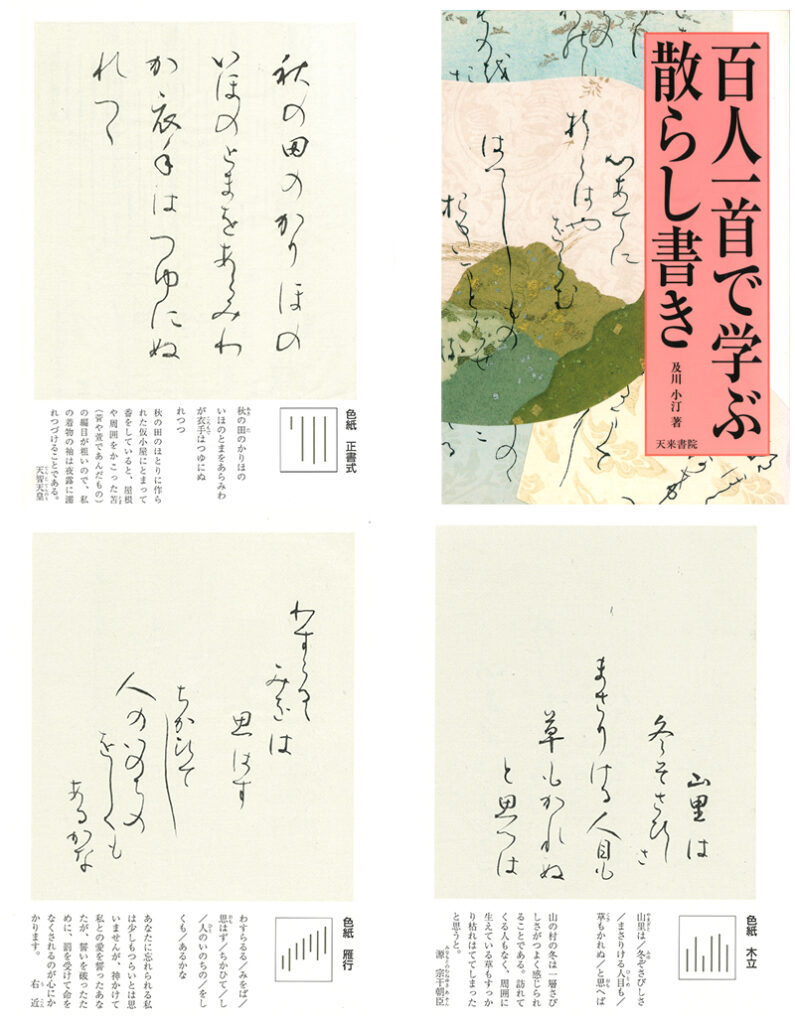 秋の田のかりほの
いほのとまをあらみわ
か衣手はつゆにぬ
れつゝ
色紙 正書式
秋の田のかりほの
いほのとまをあらみわ
が衣手はつゆにぬ
れつつ
秋の田のほとりに作ら
れた仮小屋にとまって
番をしていると、屋根
や周囲をかこった苫
(菅や萱であんだもの)
の編目が粗いので、私
の着物の袖は夜露に濡
れつづけることである。
天智天皇
百人一首で学ぶ
散らし書き
及川 小汀 著
天来書院
心あてに
折らはや
をらむ
はつしもの
わすらるゝ
みをは
思はす
ちかひて
し
人のいのちの
をしくも
あるかな
色紙 雁行
わすらるる/みをば/
思はず/ちかひて/し
/人のいのちの/をし
くも/あるかな
あなたに忘れられる私
は少しもつらいとは思
いませんが、神かけて
私との愛を誓ったあな
たが、誓いを破ったた
めに、罰を受けて命を
なくされるのが心にか
かります。
右近
山里は
冬そさひしさ
まさりける人目も
草もかれぬ
と思へは
色紙 木立
山里は/冬ぞさびしさ
/まさりける人目も/
草もかれぬ/と思へば
山の村の冬は一層さび
しさがつよく感じられ
ることである。訪れて
くる人もなく、周囲に
生えている草もすっか
り枯れはててしまった
と思うと。
源 宗于朝臣